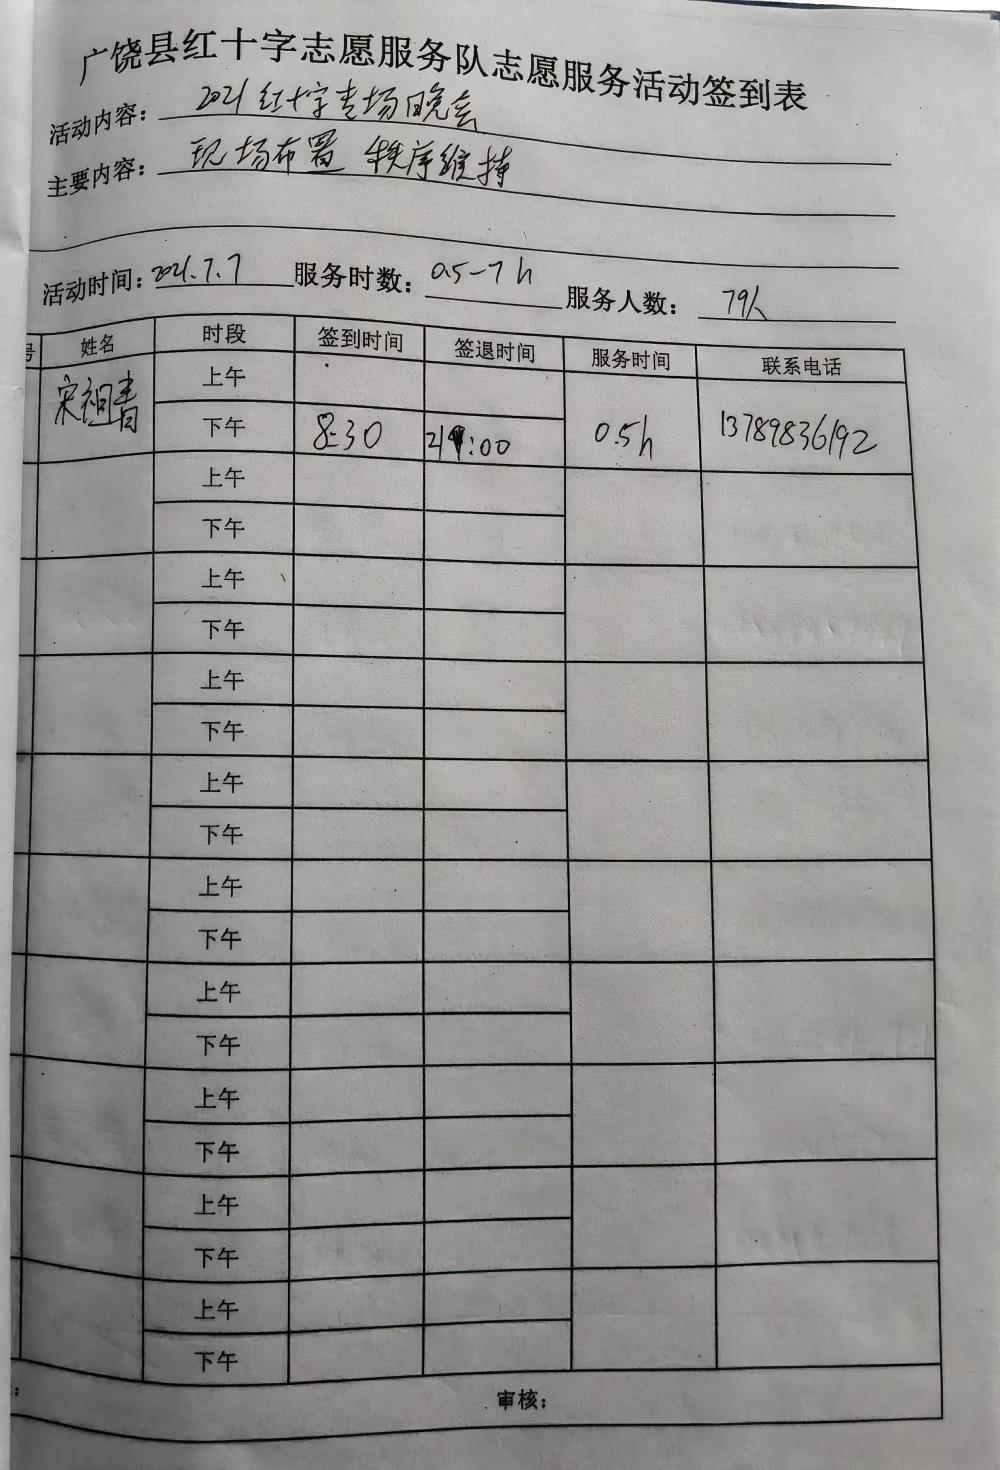 广饶县红十字志愿服务队志愿服务活动签到表
活动内容: 2021红十字专场晚会
主要内容: 现场布置 秩序维持
活动时间: 2021.7.7 服务时数: 0.5-7h 服务人数: 79人
号 姓名 时段 签到时间 签退时间 服务时间 联系电话
宋祖青 上午
下午 8:30 21:00 0.5h 13789836192
上午
下午
上午
下午
上午
下午
上午
下午
上午
下午
上午
下午
上午
下午
上午
下午
上午
下午
审核: